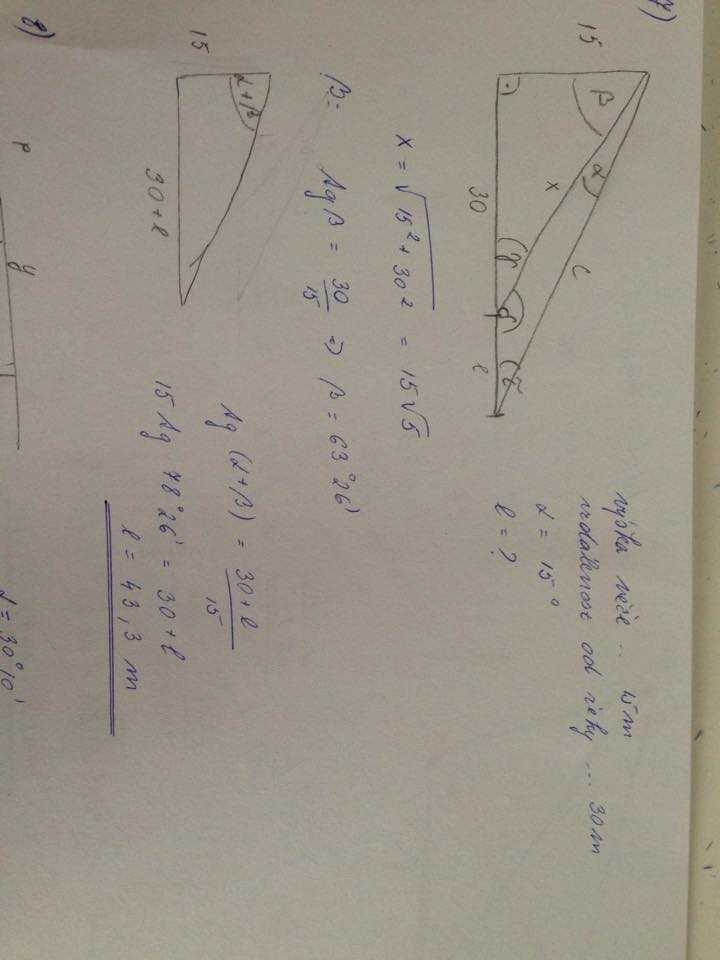 7)
15
β
α
x
c
30
γ
δ
ε
l
výška věže .. 15 m
vzdálenost od řeky ... 30 m
α = 15°
l = ?
x = √15² + 30² = 15√5
β:
tg β = 30/15 => β = 63°26'
15
α+β
30+l
tg (α+β) = 30+l/15
15 tg 78°26' = 30+l
l = 43,3 m
8)
P
y
α = 30°10'